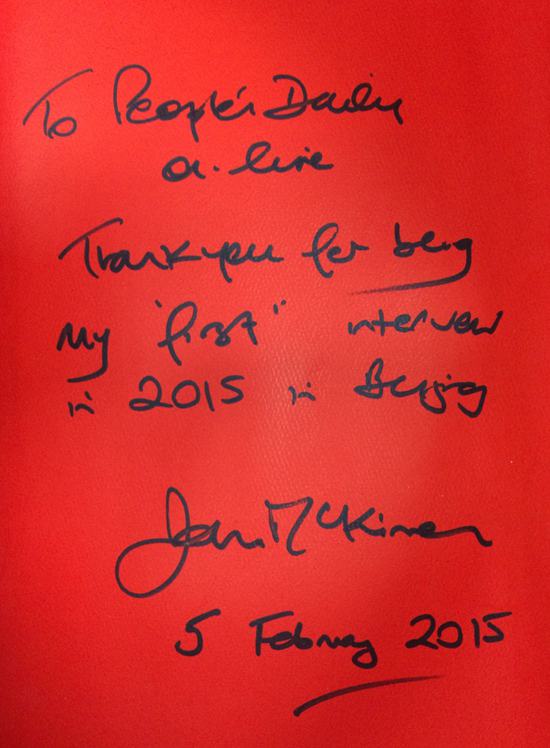 To People's Daily
on-line
Thank you for being
my "first" interview
in 2015 in Beijing
John McKinnon
5 February 2015